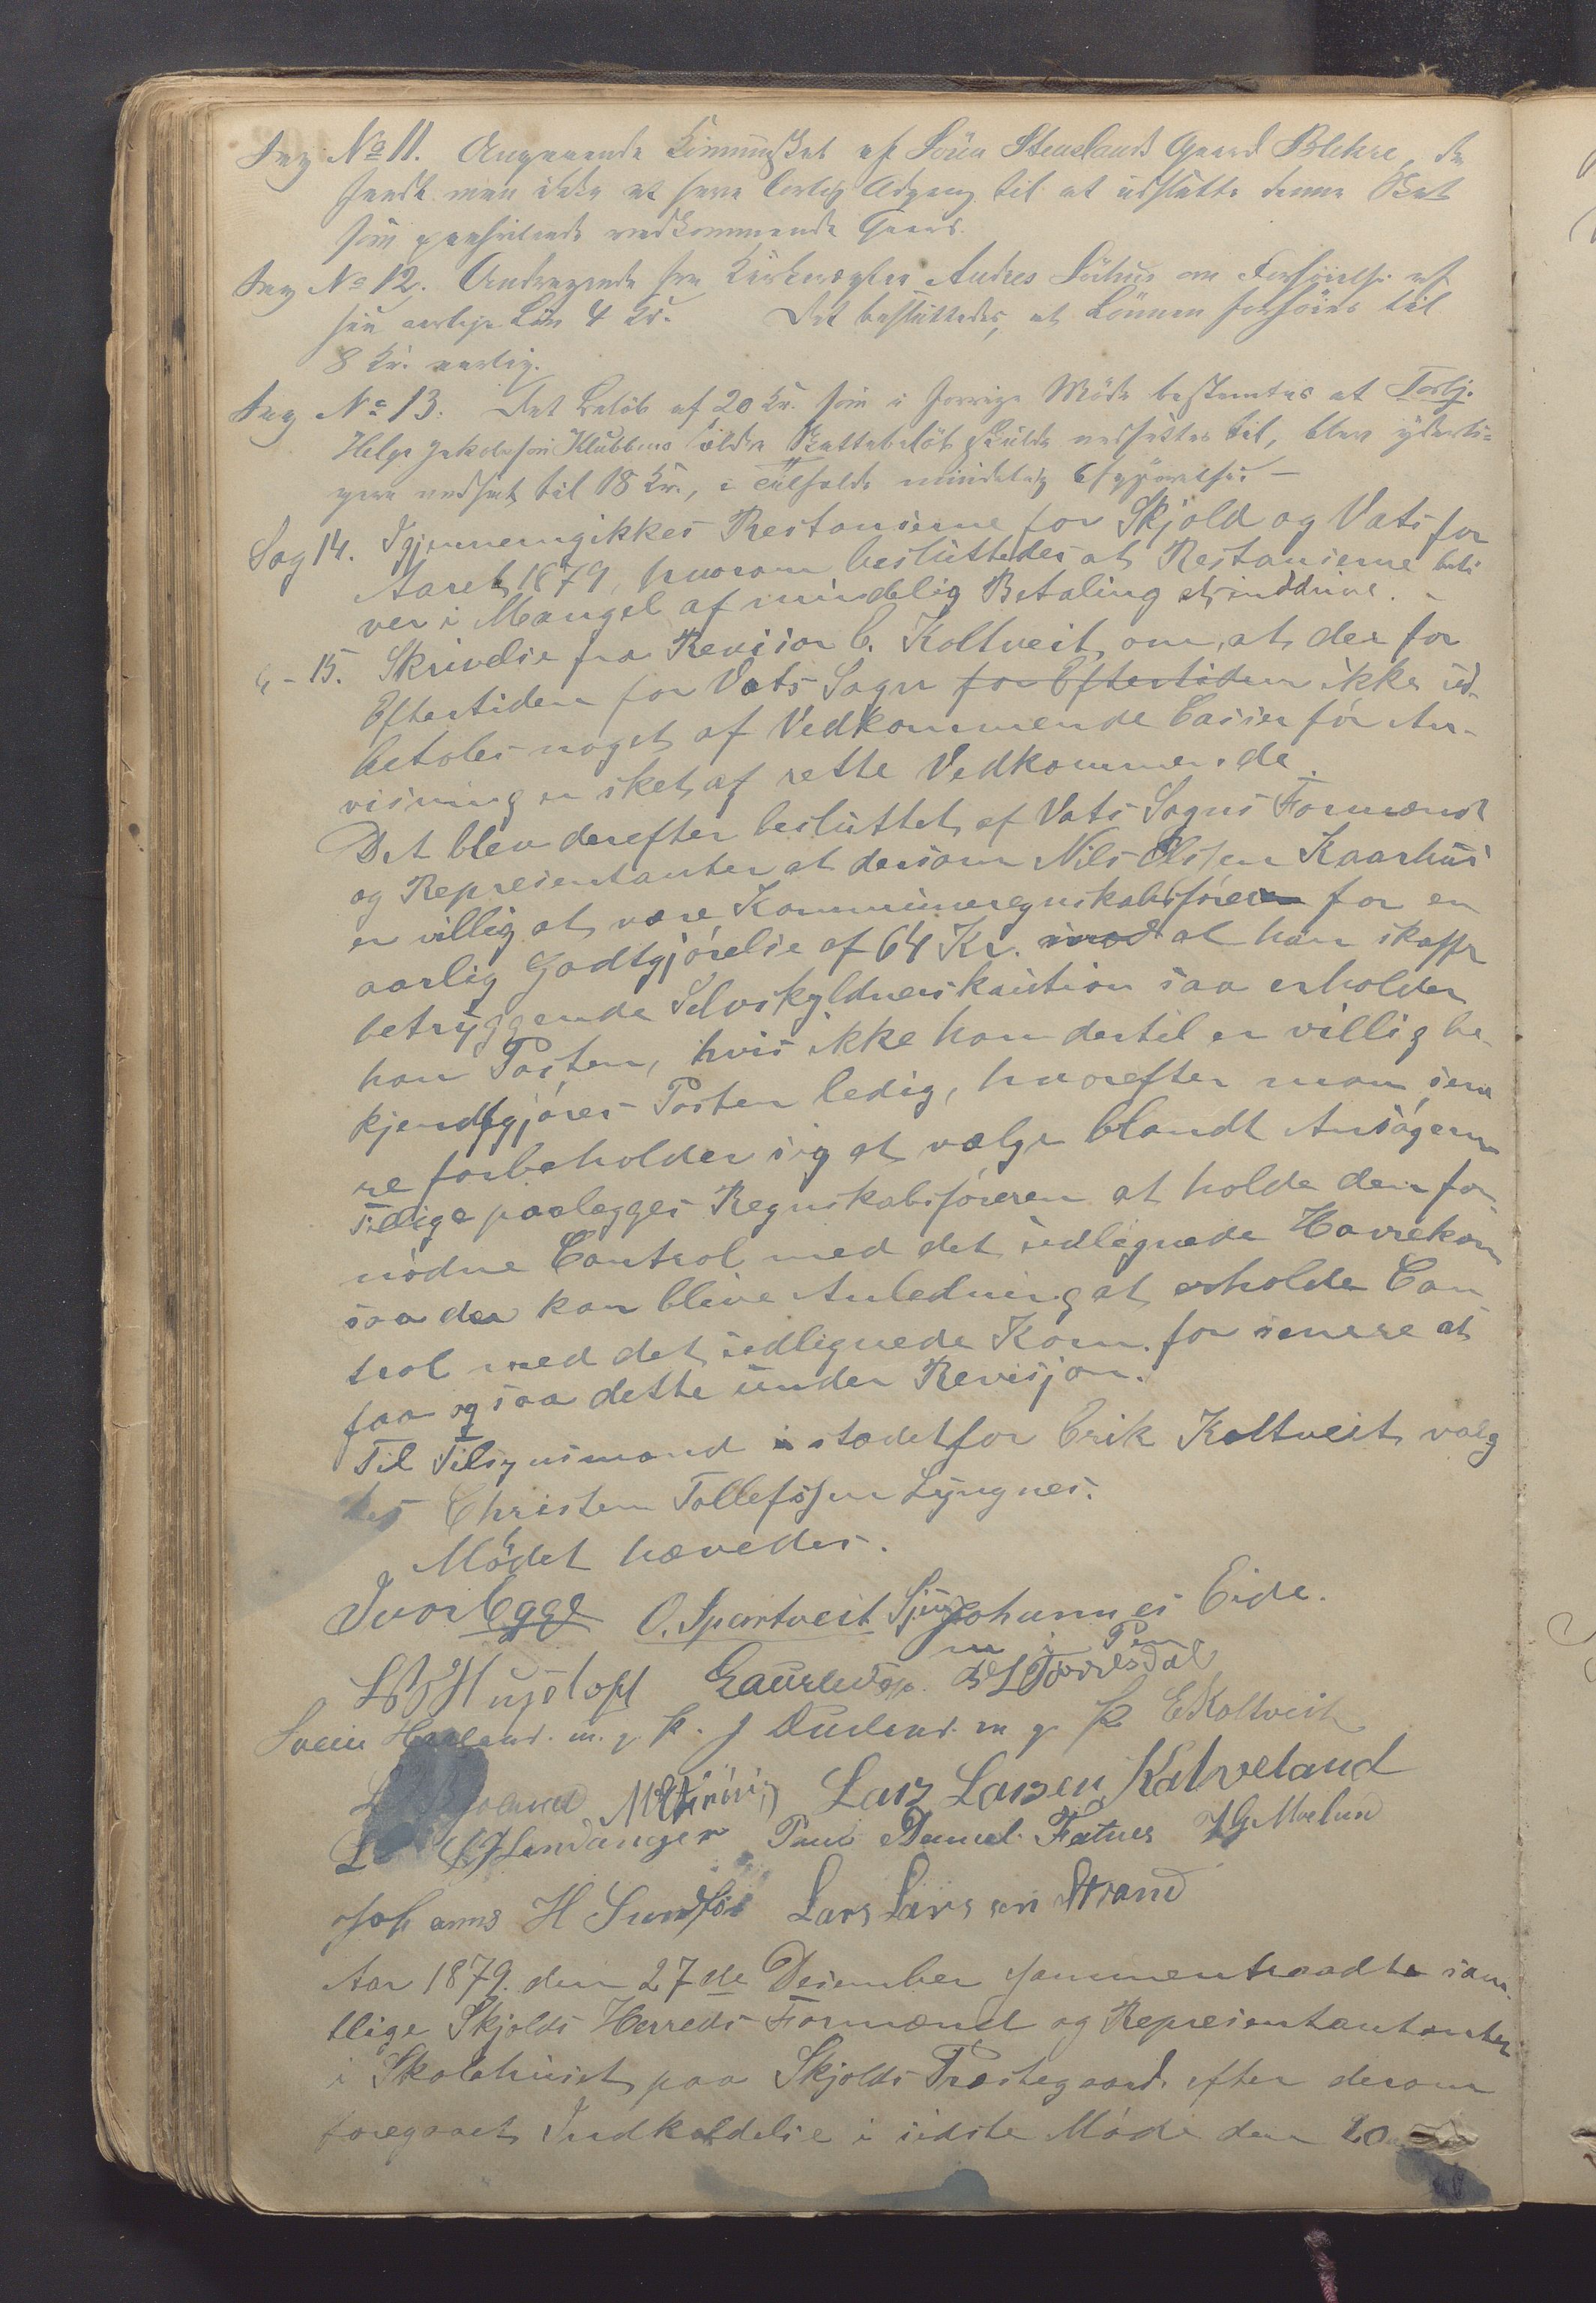 Sag No 11. Angaaende Kommuneskat af Sören Stueland Gaard Blikra, da
fandt man ikke at have lovlig Adgang til at udslette denne Skat
som paahvilende vedkommende Gaard.
Sag No 12. Andragende fra Kirkeværger Andres om Forhöielse af
sin aarlige Lön 4 Kr. Det besluttedes, at Lönnen forhöies til
8 Kr. aarlig.
Sag No 13. Det Belöb af 20 Kr. som i forrige Möde bestemtes at Torbj.
Helge Jakobsön Klubbens ældre Skattebelöb skulde nedsættes til, blev yderli-
gere nedsat til 18 Kr., i Tilfælde mindelig Afgjörelse. —
Sag 14. Igjennemgikkes Restanserne for Skjold og Vats for
Aaret 1879, hvorom besluttedes at Restanserne bli
ver i Mangel af mindelig Betaling at inddrive. -
" - 15. Skrivelse fra Revisor E. Koltveit, om, at der for
Eftertiden for Vats Sogn for Eftertiden ikke ud-
betales noget af Vedkommende Casier för An-
visning er sket af rette Vedkommende.
Det blev derefter besluttet af Vats Sogns Formænd
og Representanter at dersom Nils Olsen Kaarhus
er villig at være Kommuneregnskabsförer for en
aarlig Godtgjörelse af 64 Kr. mod at han skaffer
betryggende Selvskyldnerskaution saa erholder
han Posten, hvis ikke han dertil er villig be-
kjendtgjöres Posten ledig, hvorefter man sene
re forbeholder sig at vælge blandt Ansögerne
Tillige paalægges Regnskabsföreren at holde den for-
nödne Control med det udlignede Havrekorn
saa der kan blive Anledning at erholde Con
trol med det udlignede Korn for senere at
faa og saa dette under Revisjon.
Til Tilsynsmand i stædet for Erik Koltveit valg
tes Christen Tollefssen Lyngnes.
Mödet hævedes.
Ivar Egge O. Spartveit Johannes Eide.
m i Pen
Laurens Torresdal
Svein Haaland. m. p. P. J m p P E Koltveit
Lars Larsen Kalveland
Hardanger Daniel Fatnes
Johanns H Lars Larssen Strand
Aar 1879. den 27de Desember sammentraadte sam-
tlige Skjolds Herreds Formænd og Representantanter
i Skolehuset paa Skjolds Præstegaard efter derom
foregaaet Indkaldelse i sidste Möde den 20